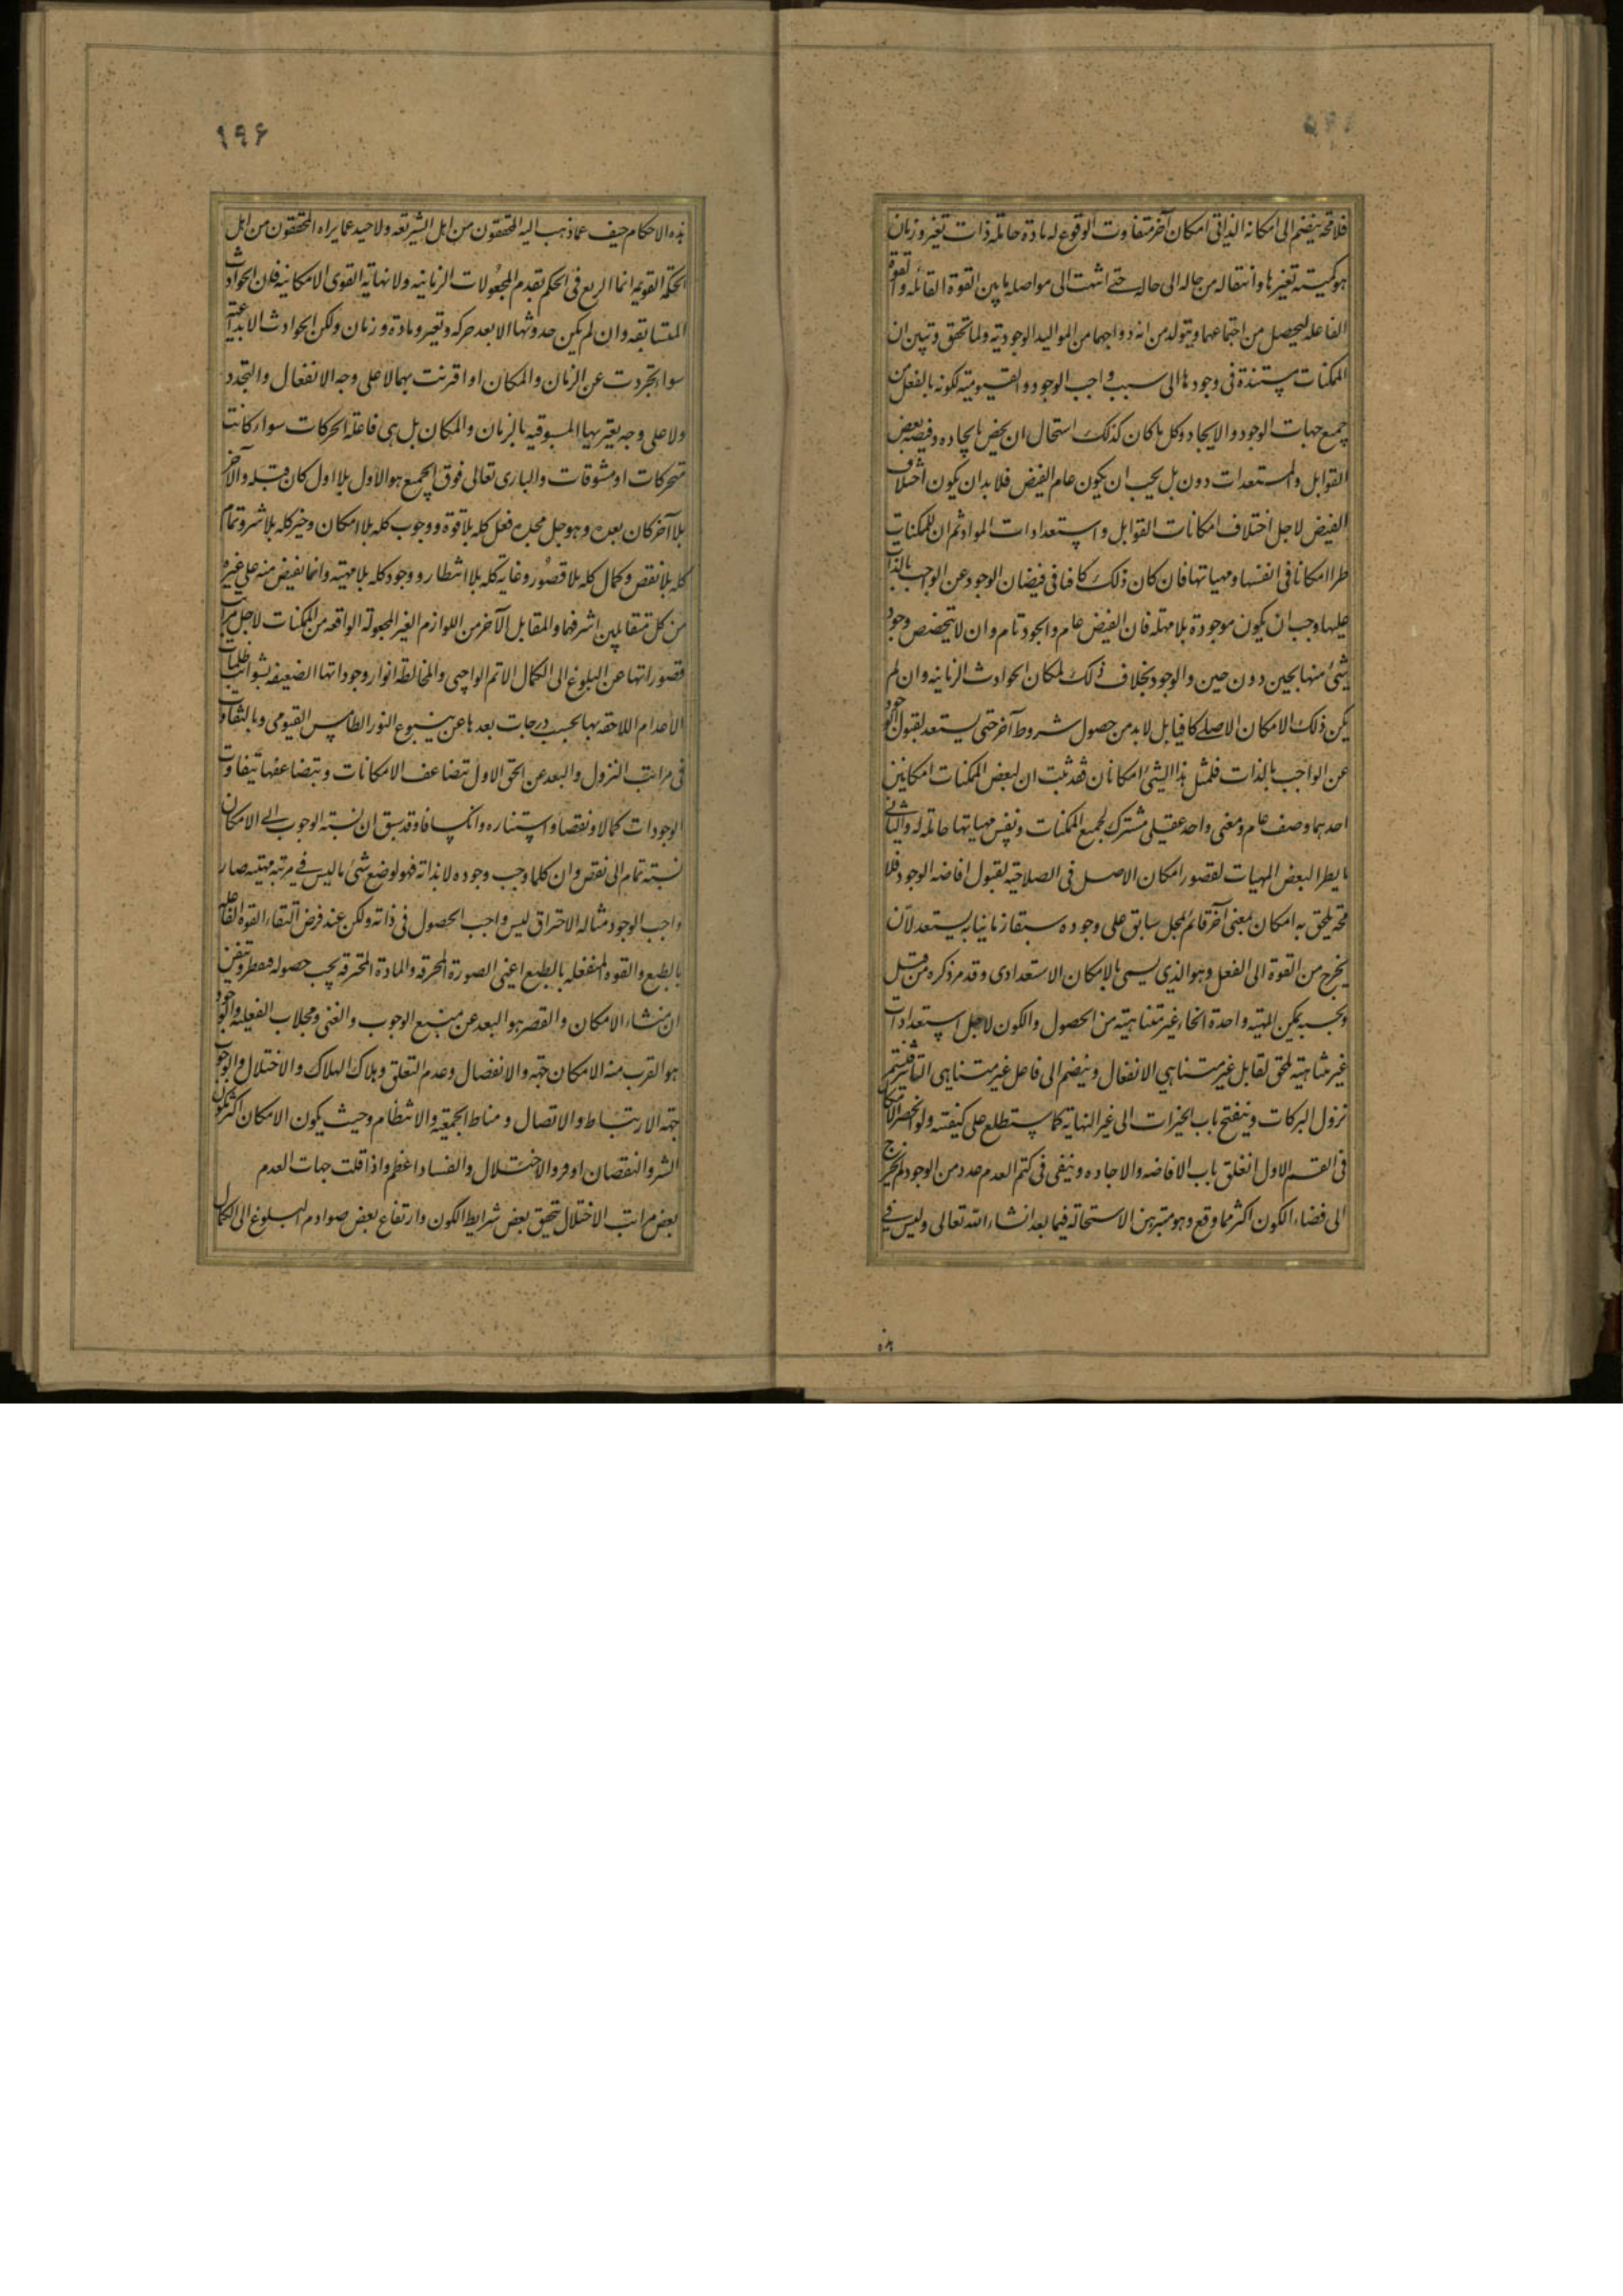 فلا محة ينضم الى امكانه الذاتى امكان آخر متفاوت الوقوع له مادة حاملة ذات تغير وزمان
هو كمية تغيرها وانتقاله من حاله الى حاله حتى انتهت الى مواصله ما بين القوة القابله والقوة
الفاعله ليحصل من اجتماعهما ويتولد من ازدواجهما من المواليد الوجودية ولما تحقق وتبين ان
الممكنات مستندة فى وجودها الى سبب واجب الوجود والقيوميه لكونه بالفعل من
جميع جهات الوجود والايجاد وكل ما كان كذلك استحال ان يخص بايجاده وفيضه بعض
القوابل والمستعدات دون بل يجب ان يكون عام الفيض فلا بد ان يكون اختلاف
الفيض لاجل اختلاف امكانات القوابل واستعدادات المواد ثم ان للممكنات
طرا امكانا فى انفسها ومهياتها فان كان ذلك كافيا فى فيضان الوجود عن الواجب بالذات
عليها وجب ان يكون موجودة بلا مهلة فان الفيض عام والجود تام وان لا يتخصص وجود
شئ منها بحين دون حين والوجود بخلاف ذلك لمكان الحوادث الزمانيه وان لم
يكن ذلك الامكان الاصلى كافيا بل لا بد من حصول شروط آخر حتى يستعد لقبول الوجود
عن الواجب بالذات فلمثل هذا الشئ امكانان فقد ثبت ان لبعض الممكنات امكانين
احدهما وصف عام ومعنى واحد عقلى مشترك لجميع الممكنات ونفس مهياتها حاملة له والثانى
ما يطرا لبعض المهيات لقصور امكان الاصل فى الصلاحيه لقبول افاضه الوجود فلا
محة يلحق به امكان بمعنى آخر قائم بمحل سابق على وجوده سبقا زمانيا به يستعد لان
يخرج من القوة الى الفعل وهو الذى يسمى بالامكان الاستعدادى وقد مر ذكره من قبل
وبحسبه يمكن المهيته واحدة انحاء غير متناهيته من الحصول والكون لاجل استعدادات
غير متناهية يلحق لقابل غير متناهى الانفعال وينضم الى فاعل غير متناهى التاثير فيستمر
نزول البركات وينفتح باب الخيرات الى غير النهاية كما ستطلع على كيفيته ولو انحصر الامكان
فى القسم الاول انغلق باب الافاضه والاجاده وبقى فى كتم العدم عدد من الوجود لم يخرج
الى فضاء الكون اكثر مما وقع وهو متبرهن الاستحالة فيما بعد انشاء الله تعالى وليس فى
هذه
١٩۶
هذه الاحكام حيف عما ذهب اليه المحققون من اهل الشريعه ولا حيد عما يراه المحققون من اهل
الحكمة القويمه انما الريع فى الحكم بقدم المجعولات الزمانيه ولا نهاية القوى الامكانيه فان الحوادث
المتسابقه وان لم يكن حدوثها الا بعد حركه وتغير ومادة وزمان ولكن الحوادث الابداعية
سواء تجردت عن الزمان والمكان او اقترنت بهما لا على وجه الانفعال والتجدد
ولا على وجه يعتريها المسبوقيه بالزمان والمكان بل هى فاعلة الحركات سواء كانت
متحركات او مشوقات والبارى تعالى فوق الجميع هو الاول بلا اول كان قبله والآخر
بلا آخر كان بعده وهو جل مجده فعل كله بلا قوة ووجوب كله بلا امكان وخير كله بلا شر وتمام
كله بلا نقص وكمال كله بلا قصور وغاية كله بلا انتظار ووجود كله بلا مهيته وانما يفيض منه على غيره
من كل متقابلين اشرفهما والمقابل الآخر من اللوازم الغير المجعولة الواقعه من الممكنات لاجل مراتب
قصوراتها عن البلوغ الى الكمال الاتم الواجبى والمخالطة انوار وجوداتها الضعيفه بشوائب ظلمات
الاعدام اللاحقه بها بحسب درجات بعدها عن ينبوع النور الطامس القيومى وبالتفاوت
فى مراتب النزول والبعد عن الحق الاول يتضاعف الامكانات وبتضاعفها يتفاوت
الوجودات كمالا ونقصا واستناره وانكسافا وقد سبق ان نسبته الوجوب الى الامكان
نسبته تمام الى نقص وان كلما وجب وجوده لا بذاته فهو لوضع شئ ما ليس فى مرتبة مهيته صار
واجب الوجود مثاله الاحتراق ليس واجب الحصول فى ذاته ولكن عند فرض التقاء القوه الفاعله
بالطبع والقوه المنفعله بالطبع اعنى الصورة المحرقه والمادة المحترقه يجب حصوله فقطر وتيقن
ان منشاء الامكان والقصر هو البعد عن منبع الوجوب والغنى ومجلاب الفعليه والوجود
هو القرب منه الامكان جهة والانفصال وعدم التعلق وبلاك الهلاك والاختلال والوجوب
جهة الارتباط والاتصال ومناط الجمعية والانتظام وحيث يكون الامكان اكثر يكون
الشر والنقصان اوفر والاختلال والفساد اعظم واذا قلت جهات العدم
بعض مراتب الاختلال بتحقق بعض شرايط الكون وارتفاع بعض صوادم البلوغ الى الكمال